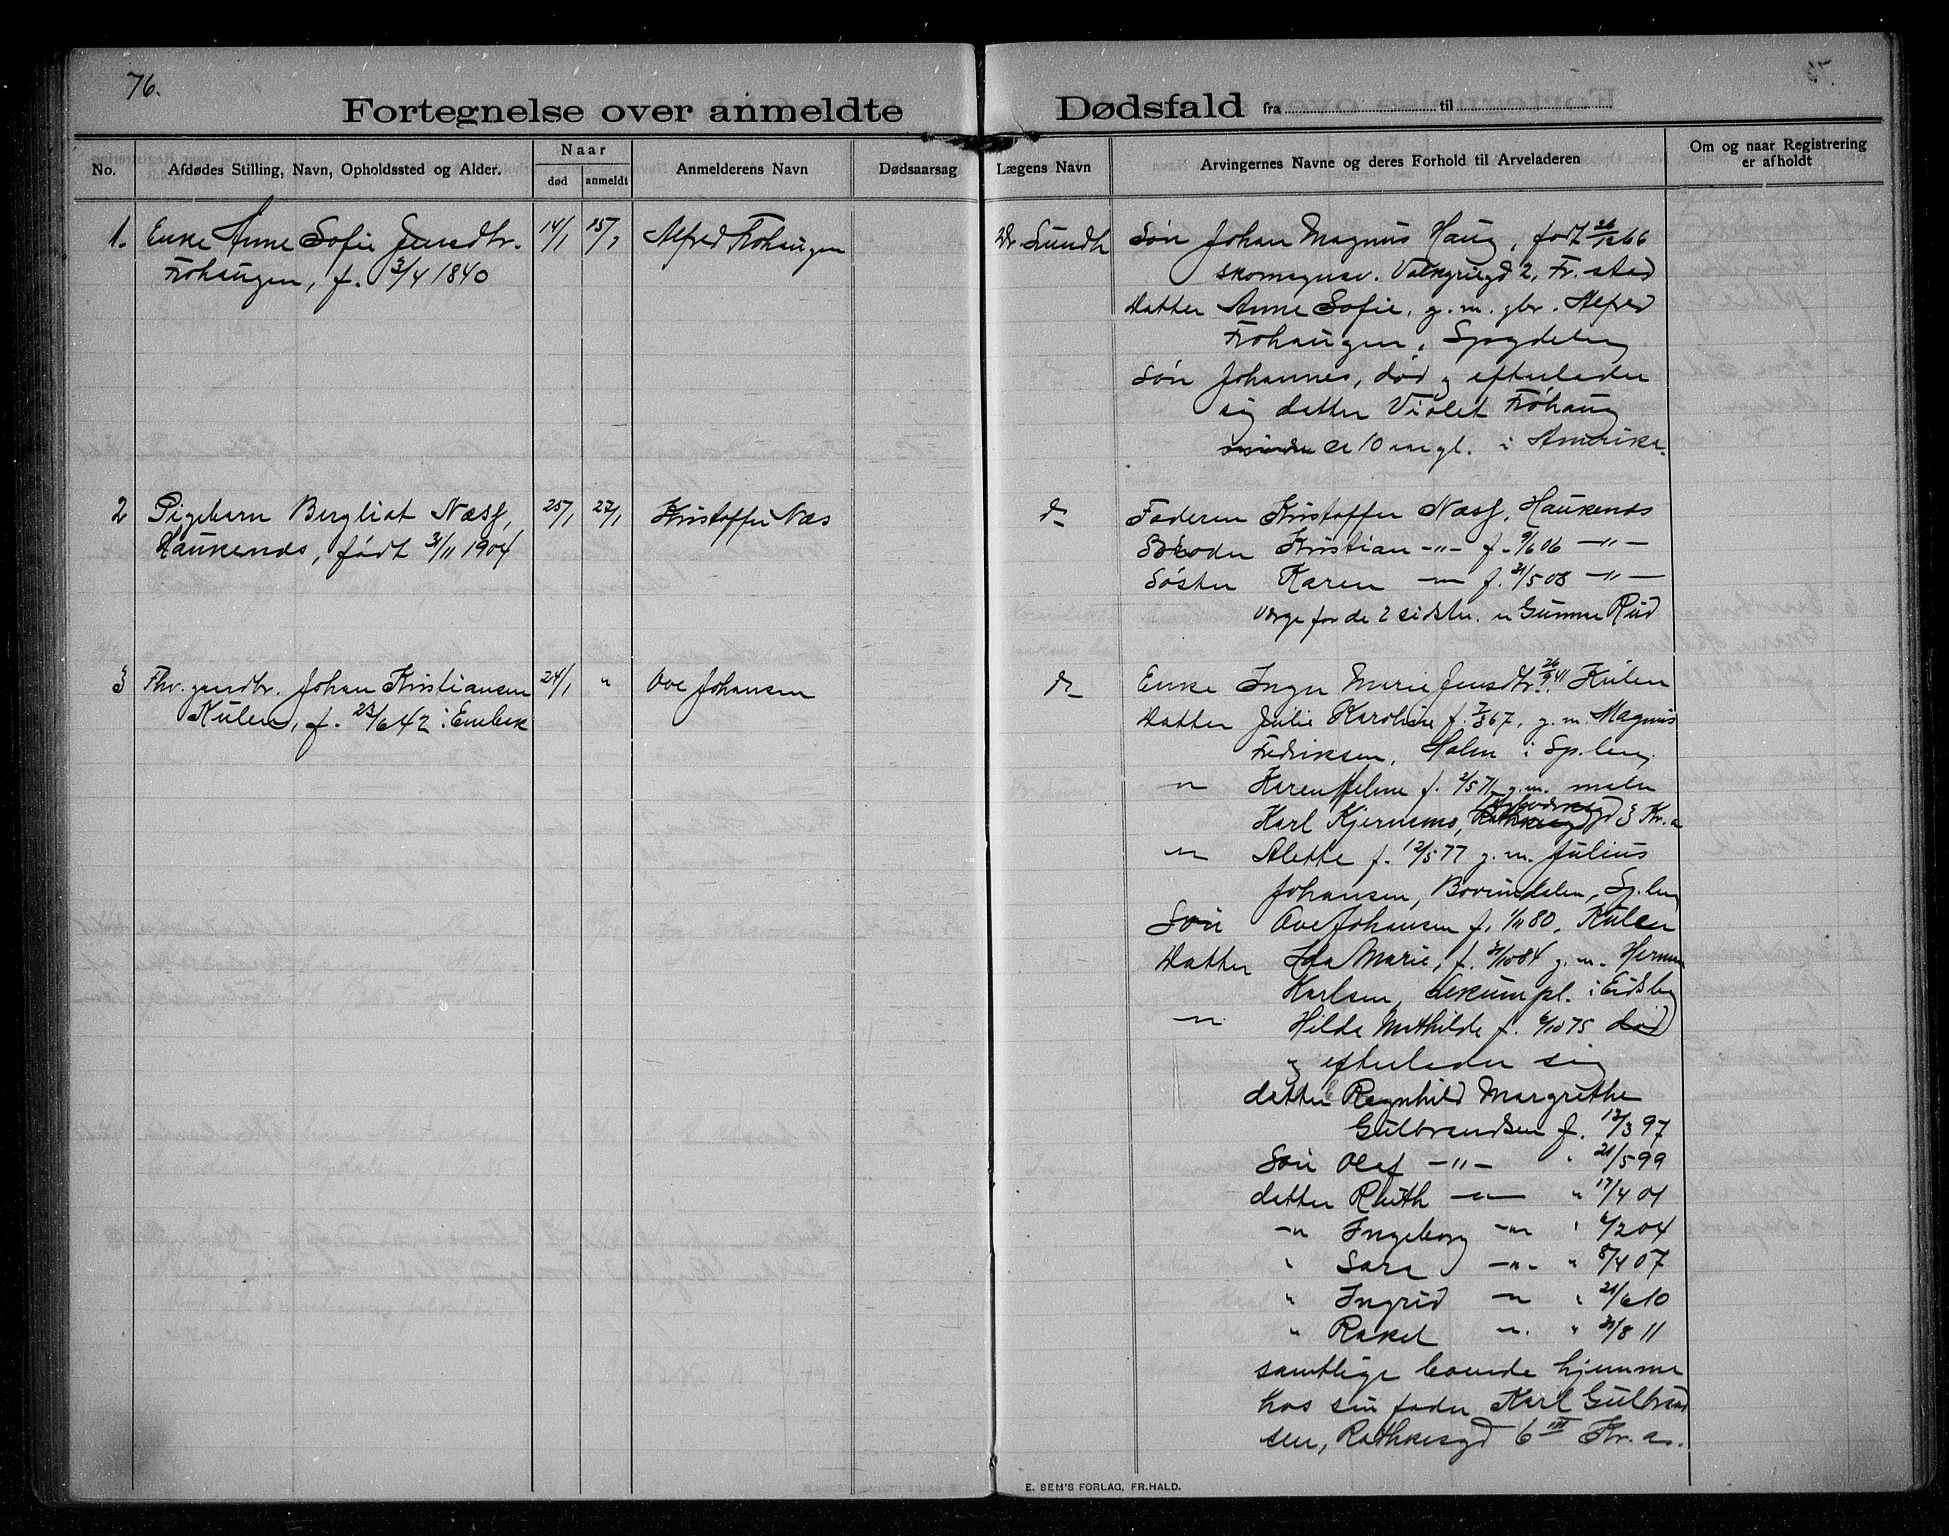 76.
Fortegnelse over anmeldte Dødsfald fra til
No.
Afdødes Stilling, Navn, Opholdssted og Alder.
Naar
død
anmeldt
Anmelderens Navn
Dødsaarsag
Lægens Navn
Arvingernes Navne og deres Forhold til Arveladeren
Om og naar Registrering
er afholdt
1. Enke Anne Sofie Jensdtr. 14/1 15/1 Alfred Frøhaugen Dr. Lundh
Frøhaugen, f. 3/4 1840
Søn Johan Magnus Haug, født 26/12 66
skomagersv. Valkyriegd 2, Fr.stad
Datter Anne Sofie, g.m. gbr. Alfred
Frøhaugen, Spydeberg
Søn Johannes, død og efterlader
sig datter Violet Frøhaug
ca 10 aar gl. i Amerika.
2 Pigebarn Bergliot Næss, 25/1 27/1 Kristoffer Næs do
Haukenæs, født 3/11 1904
Faderen Kristoffer Næss, Haukenæs
Broder Kristian -"- f. 9/6 06 -"-
Søster Karen -"- f. 31/5 08 -"-
Værge for de 2 sidste er Gunne Rud
3 Fhv. gaardbr. Johan Kristiansen 24/1 " Ove Johansen do
Kulen, f. 23/6 42 i Enebak
Enke Inger Marie Jensdtr. f. 26/9 41 Kulen
Datter Julie Karoline f. 7/3 67, g.m. Magnus
Fredriksen, Holm i Sp.berg
-"- Karen Helme f. 2/5 71 g.m. maler
Karl Kjernemo, gd 3 Kr.a
-"- Alette f. 12/5 77 g.m. Julius
Johansen, Bovimdalen, Sp.berg
Søn Ove Johansen f. 1/11 80, Kulen
Datter Ida Marie, f. 31/10 84 g.m. Herman
Karlsen, Askimpl. i Eidsbg
-"- Hilda Mathilde f. 6/10 75 død
og efterlader sig
datter Ragnhild Margrethe
Gulbrandsen f. 12/3 97
Søn Olaf -"- " 21/5 99
datter Ruth -"- " 17/4 01
-"- Ingeborg -"- " 6/2 04
" Sara -"- " 8/4 07
" Ingrid -"- " 21/6 10
" Rakel -"- " 31/8 11
samtlige boende hjemme
hos sin fader Karl Gulbrand
sen, Rathkesgd 6 III Kr.a.
E. SEM'S FORLAG, FR.HALD.